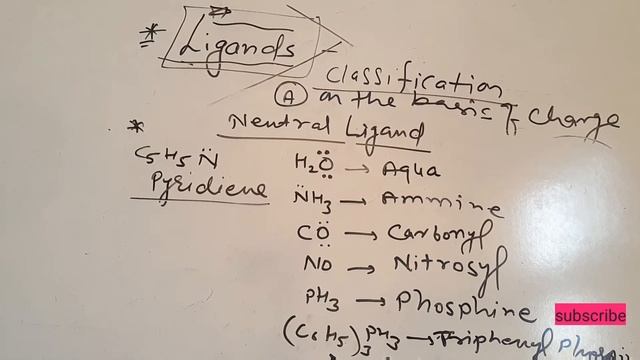 * Ligands
Classification
(A) on the basis of charge
* Neutral Ligand
C5H5N̈
Pyridiene
H2O → Aqua
NH3 → Ammine
CO → Carbonyl
NO → Nitrosyl
PH3 → Phosphine
(C6H5)3PH3 → Triphenyl
subscribe